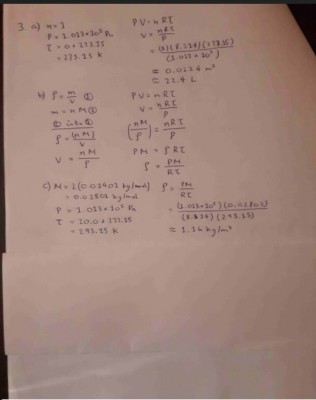 3. a) n = 1
P = 1.013×10⁵ Pa
T = 0 + 273.15
= 273.15 K
PV = nRT
V = nRT/P
= (1)(8.314)(273.15)/(1.013×10⁵)
≈ 0.0224 m³
≈ 22.4 L
b) ρ = m/V ①
m = nM ②
② into ①
ρ = (nM)/V
V = nM/ρ
PV = nRT
V = nRT/P
(nM/ρ) = nRT/P
PM = ρRT
ρ = PM/RT
c) M = 2(0.01401 kg/mol)
= 0.02802 kg/mol
P = 1.013×10⁵ Pa
T = 20.0 + 273.15
= 293.15 K
ρ = PM/RT
= (1.013×10⁵)(0.02802)/(8.314)(293.15)
≈ 1.16 kg/m³